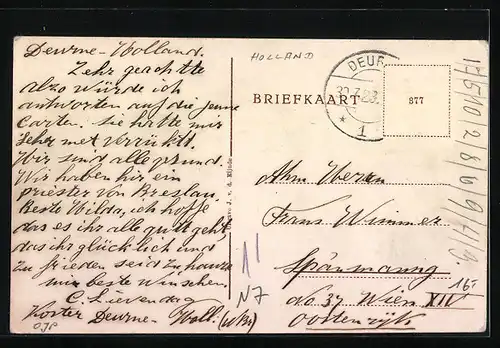 Deurne-Holland.
Zehr geachtte
alzo würde ich
antworten auf die jenne
Carten. Sie hatte mir
Sehr met verrückt.
Wir sind alle gesund.
Wir haben hir ein
priester von Breslau.
Beste Hilda, ich hoffe
das es ihr alle gutt geht
das ihr glücklich und
zu frieden seid zu hause
mir beste winschen.
C. Lievendag
Koster Deurne- Holl. (N.Br)
HOLLAND
DEUR
1
BRIEFKAART
877
An Herrn
Frans Wimmer
No. 37 Wien XIV
Oostenryk
11
N7
16.-